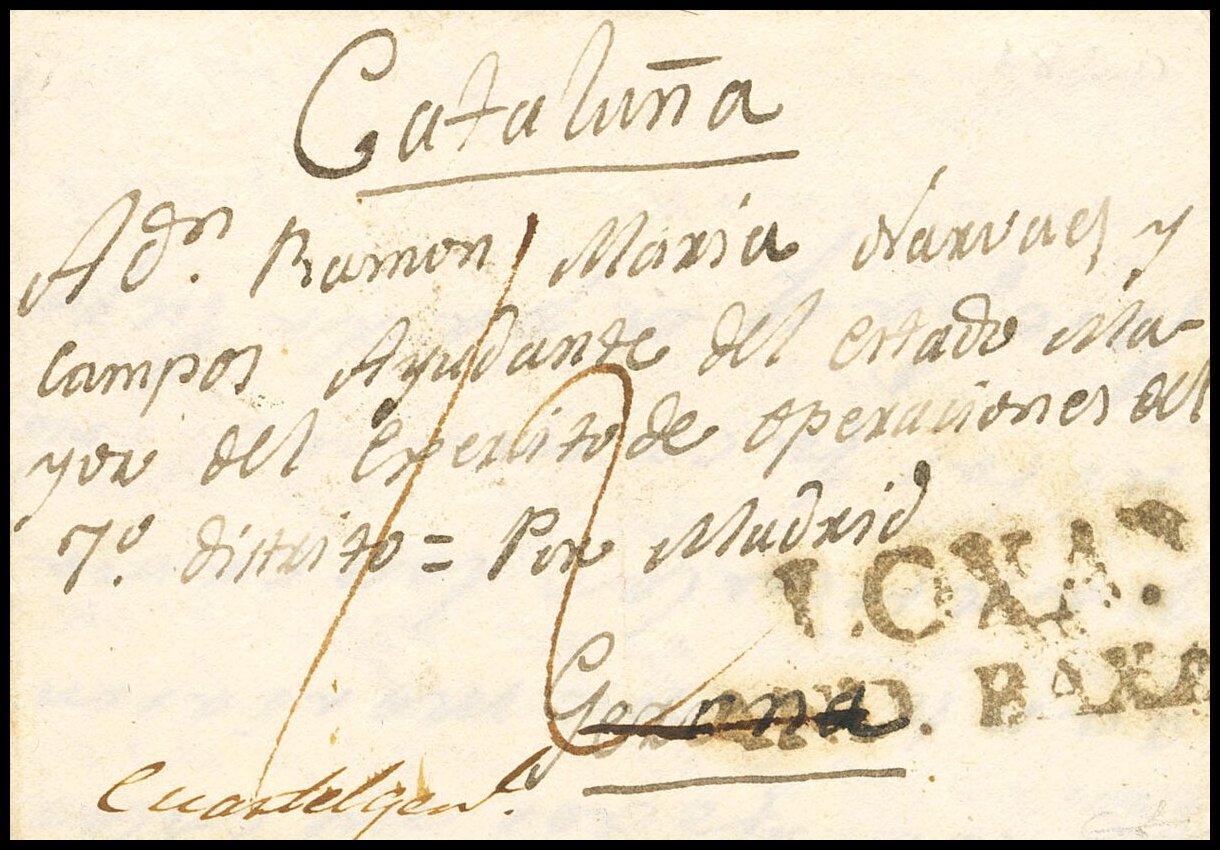 Cataluña
A dn. Ramon Maria Narvaes y
Campos Ayudante del estado Ma-
yor del Exercito de operaciones del
7º. distrito = Por Madrid
LOXA.
Gerona
BAXA
Cuartel genl.